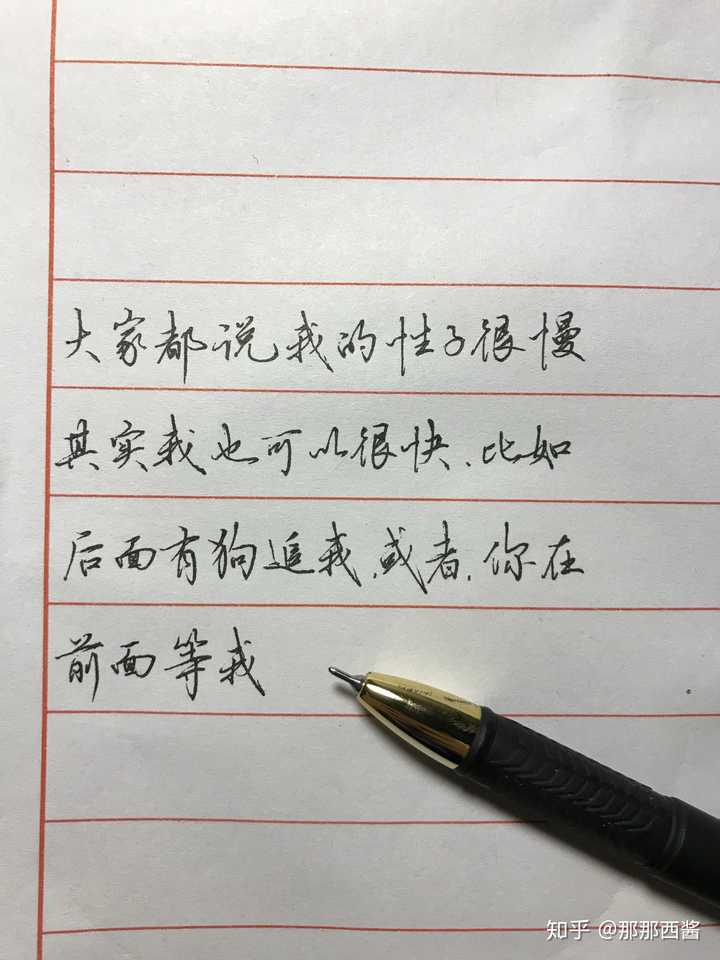 大家都说我的性子很慢
其实我也可以很快、比如
后面有狗追我、或者、你在
前面等我
知乎 @那那西酱